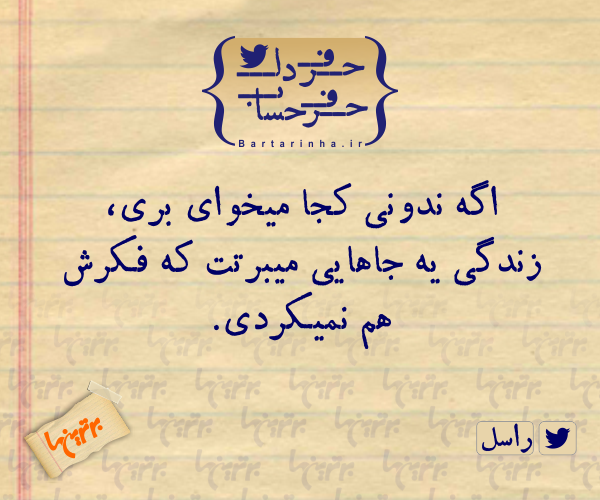 حرف دل
حرف حساب
Bartarinha.ir
اگه ندونی کجا میخوای بری،
زندگی یه جاهایی میبرتت که فکرش
هم نمیکردی.
برترین‌ها
راسل